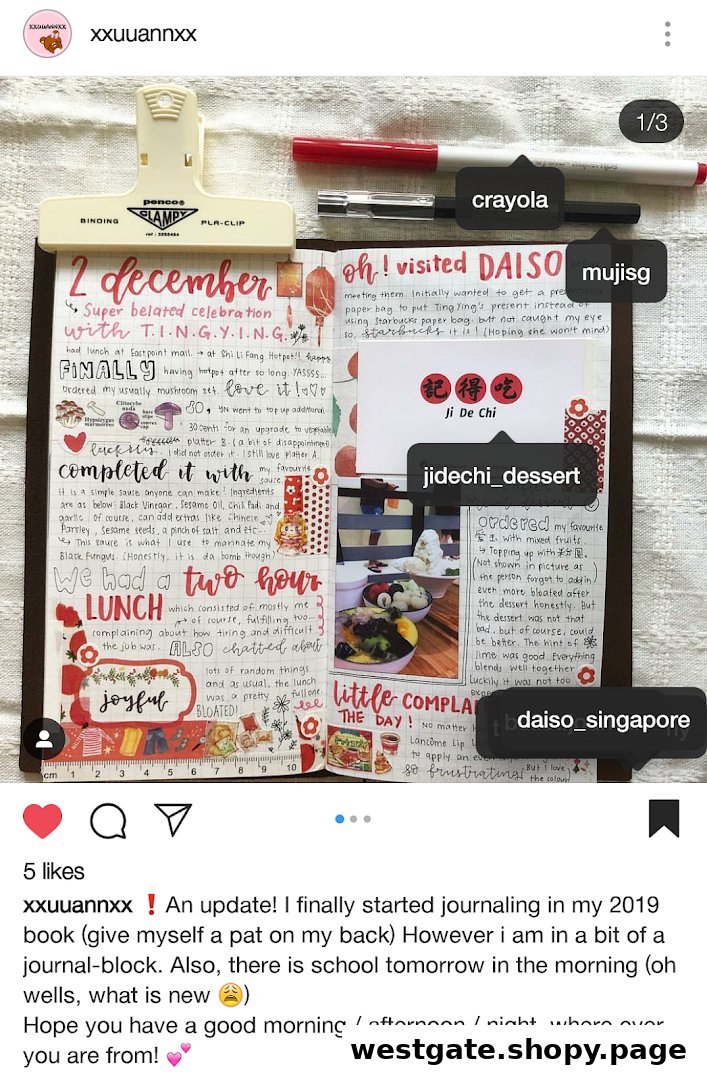 XXUUANNXX
xxuuannxx
1/3
crayola
mujisg
penco®
BINDING CLAMPY PLA-CLIP
2 december
↳ Super belated celebration
with T.I.N.G.Y.I.N.G.
had lunch at Eastpoint mall. → at Shi Li Fang Hotpot!! happy
FINALLY having hotpot after so long. YASSSS...
Ordered my usually mushroom set. love it! ♡♡
SO, YN went to top up additional
30cents for an upgrade to vegetable
platter B. (a bit of disappointment
luckiis i did not order it. I still love platter A.
completed it with my favourite
sauce
It is a simple sauce anyone can make! Ingredients
are as below: Black Vinegar, Sesame Oil, Chili Padi and
garlic. Of course, can add extras like Chinese
Parsley, Sesame seeds, a pinch of salt and etc...
↳ This sauce is what I use to marinate my
Black Fungus (Honestly, it is da bomb though)
We had a two hour
LUNCH which consisted of mostly me
↗ of course, fulfilling too...
complaining about how tiring and difficult
the job was. ALSO chatted about
lots of random things
and as usual, the lunch
was a pretty full one
BLOATED!
joyful
cm 1 2 3 4 5 6 7 8 9 10
oh! visited DAISO
meeting them. Initially wanted to get a presentable
paper bag to put Ting Ying's present instead of
using Starbucks paper bag. but not caught my eye
so, starbucks it is! (Hoping she won't mind)
記得吃
Ji De Chi
jidechi_dessert
ordered my favourite
with mixed fruits.
↳ Topping up with
(Not shown in picture as
the person forgot to add in)
even more bloated after
the dessert honestly. But
the dessert was not that
bad. but of course, could
be better. The hint of
lime was good. Everything
blends well together
Luckily it was not too
little COMPLAI
THE DAY! No matter h
Lancôme Lip
to apply an eve
so frustrating! But I love
the colour
daiso_singapore
5 likes
xxuuannxx ❗ An update! I finally started journaling in my 2019
book (give myself a pat on my back) However i am in a bit of a
journal-block. Also, there is school tomorrow in the morning (oh
wells, what is new 😩)
Hope you have a good morning / afternoon / night, where ever
you are from! 💕
westgate.shopy.page